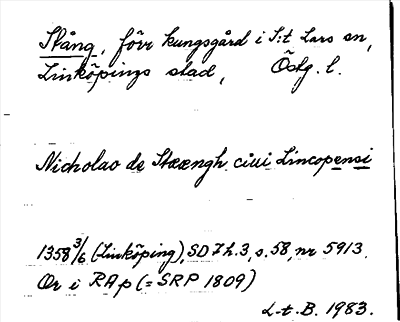 Stång, förr kungsgård i S:t Lars sn,
Linköpings stad, Östg. l.
Nicholao de Stæængh ciui Lincopensi
1358 3/6 (Linköping), SD 7 h. 3, s. 58, nr 5913.
Or i RAp (= SRP 1809)
L-t. B. 1983.